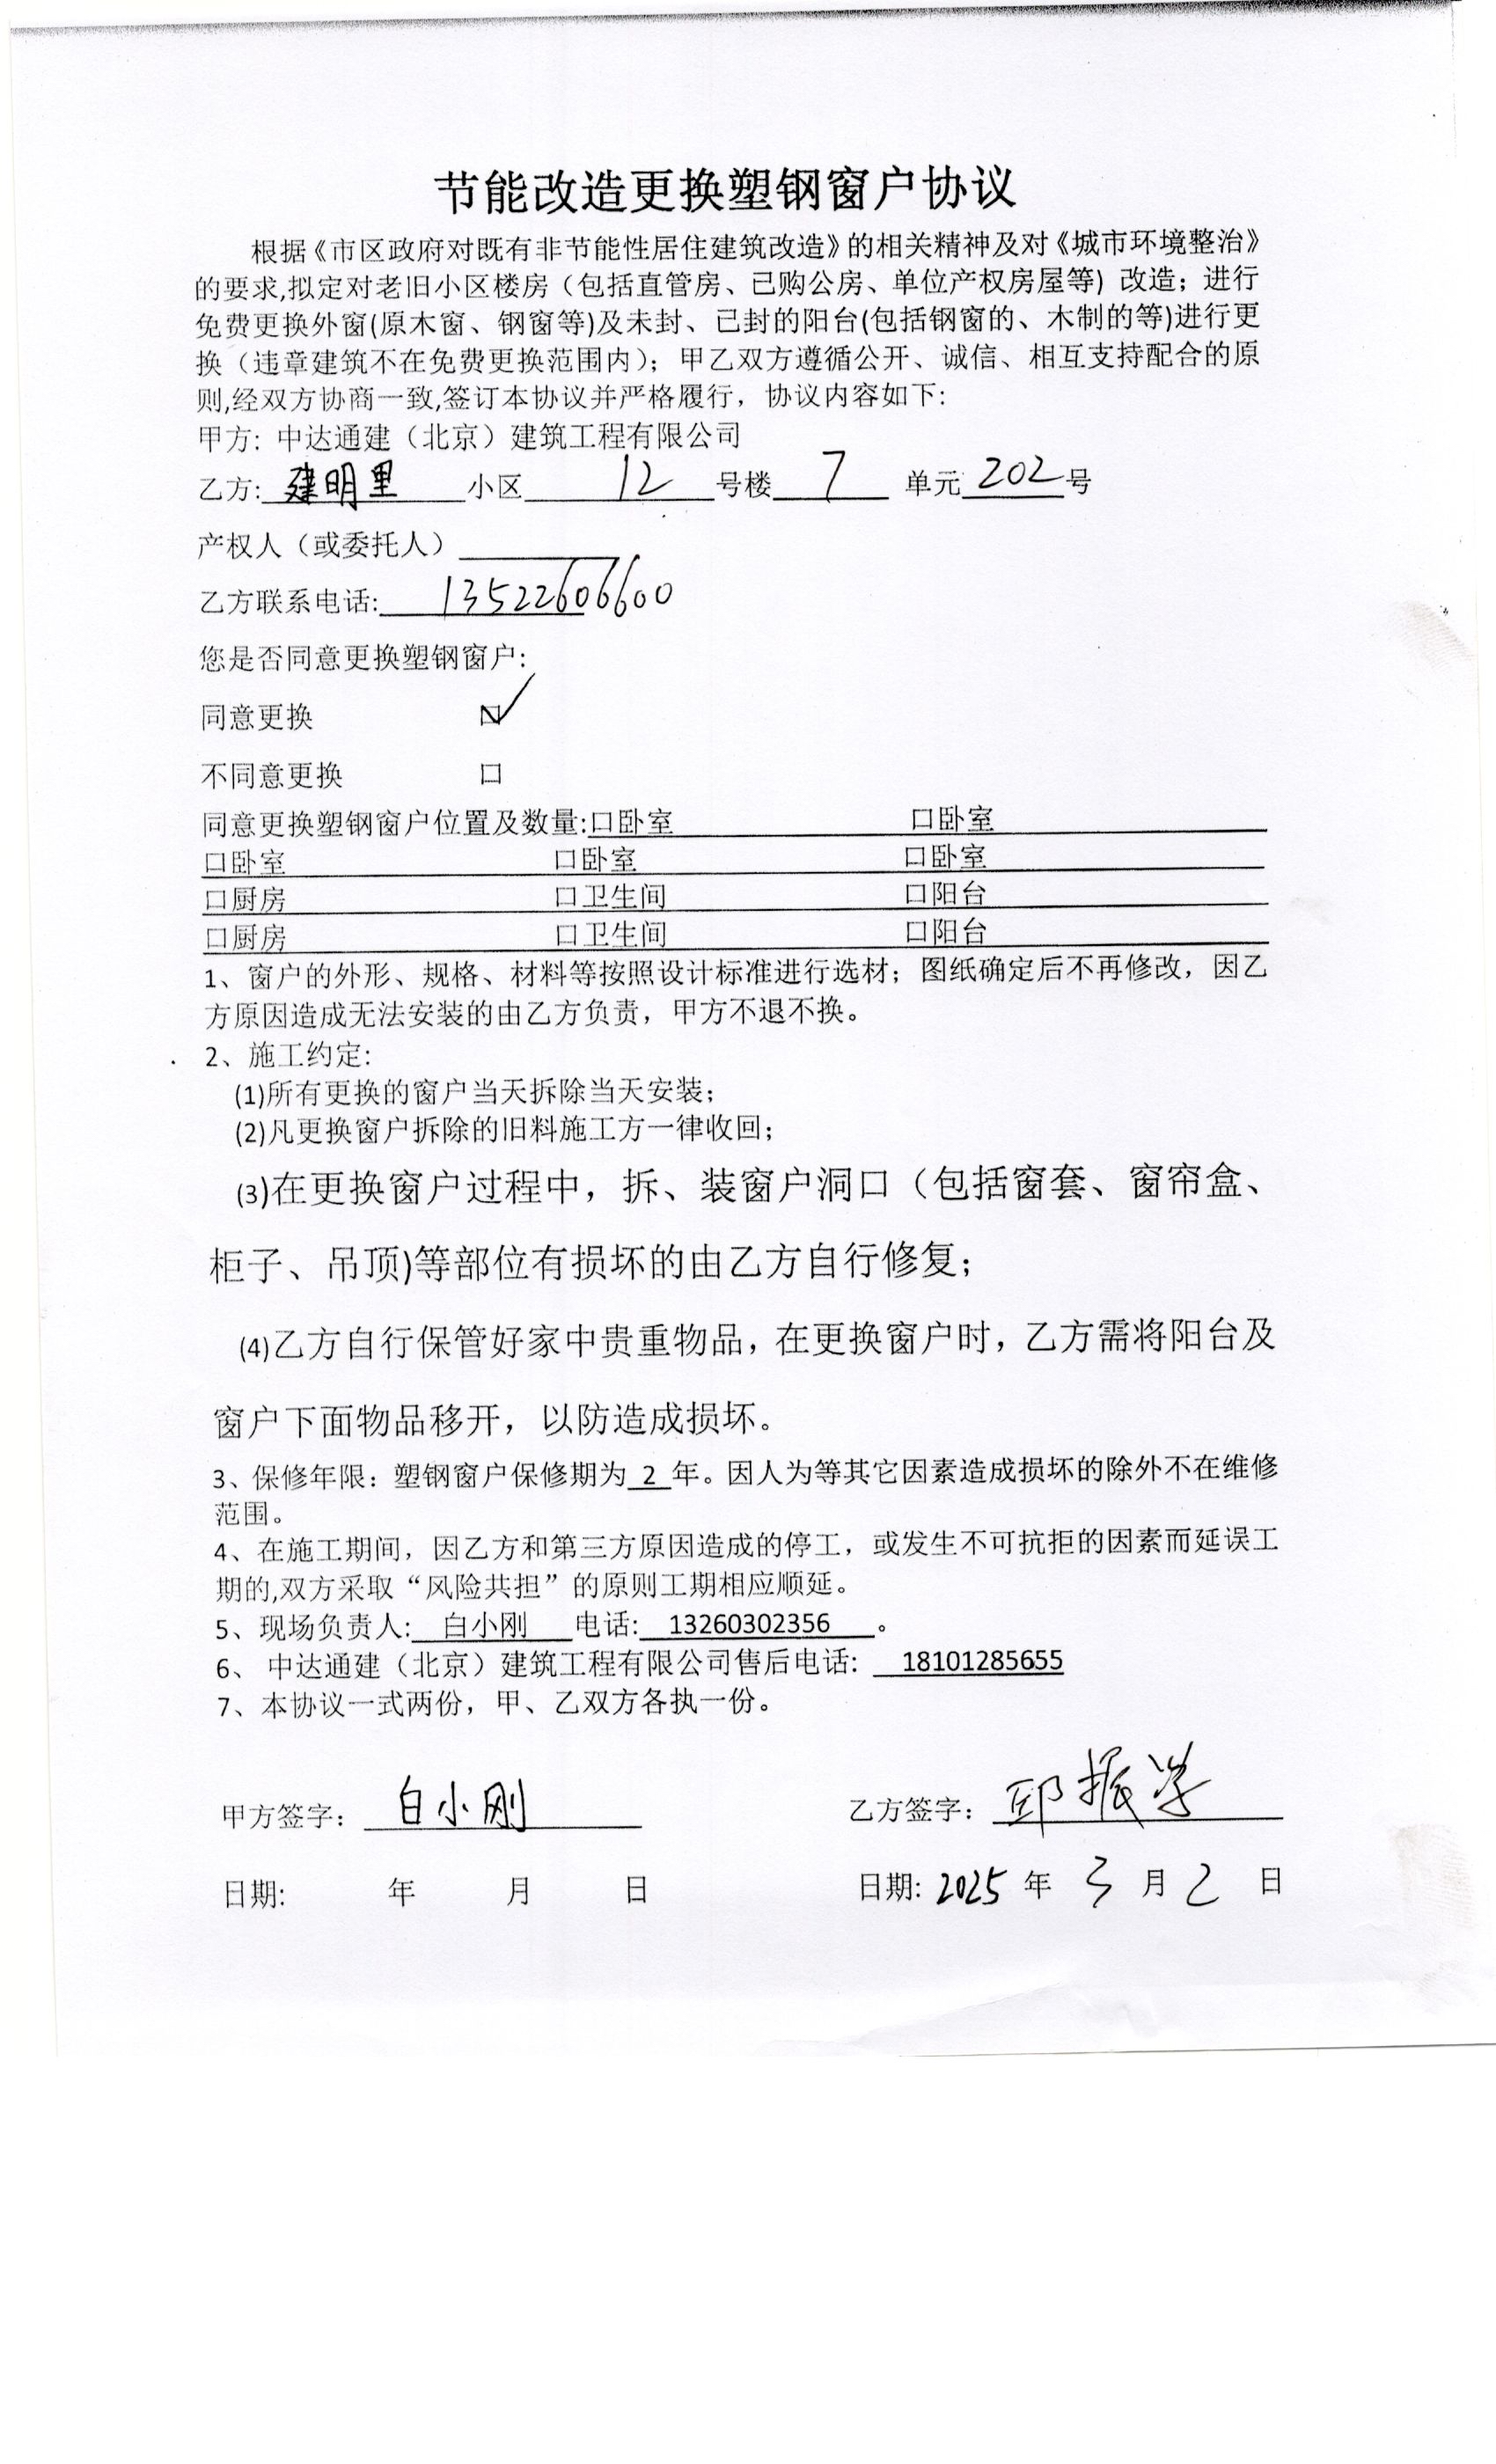 节能改造更换塑钢窗户协议
根据《市区政府对既有非节能性居住建筑改造》的相关精神及对《城市环境整治》
的要求,拟定对老旧小区楼房（包括直管房、已购公房、单位产权房屋等）改造；进行
免费更换外窗(原木窗、钢窗等)及未封、已封的阳台(包括钢窗的、木制的等)进行更
换（违章建筑不在免费更换范围内）；甲乙双方遵循公开、诚信、相互支持配合的原
则,经双方协商一致,签订本协议并严格履行，协议内容如下:
甲方: 中达通建（北京）建筑工程有限公司
乙方: 建明里 小区 12 号楼 7 单元 202 号
产权人（或委托人）
乙方联系电话: 13522606600
您是否同意更换塑钢窗户:
同意更换 ☑
不同意更换 口
同意更换塑钢窗户位置及数量:口卧室 口卧室
口卧室 口卧室 口卧室
口厨房 口卫生间 口阳台
口厨房 口卫生间 口阳台
1、窗户的外形、规格、材料等按照设计标准进行选材；图纸确定后不再修改，因乙
方原因造成无法安装的由乙方负责，甲方不退不换。
2、施工约定:
(1)所有更换的窗户当天拆除当天安装；
(2)凡更换窗户拆除的旧料施工方一律收回；
(3)在更换窗户过程中，拆、装窗户洞口（包括窗套、窗帘盒、
柜子、吊顶)等部位有损坏的由乙方自行修复；
(4)乙方自行保管好家中贵重物品，在更换窗户时，乙方需将阳台及
窗户下面物品移开，以防造成损坏。
3、保修年限：塑钢窗户保修期为 2 年。因人为等其它因素造成损坏的除外不在维修
范围。
4、在施工期间，因乙方和第三方原因造成的停工，或发生不可抗拒的因素而延误工
期的,双方采取“风险共担”的原则工期相应顺延。
5、现场负责人: 白小刚 电话: 13260302356 。
6、 中达通建（北京）建筑工程有限公司售后电话: 18101285655
7、本协议一式两份，甲、乙双方各执一份。
甲方签字： 白小刚 乙方签字： 邱振学
日期: 年 月 日 日期: 2025 年 3 月 2 日